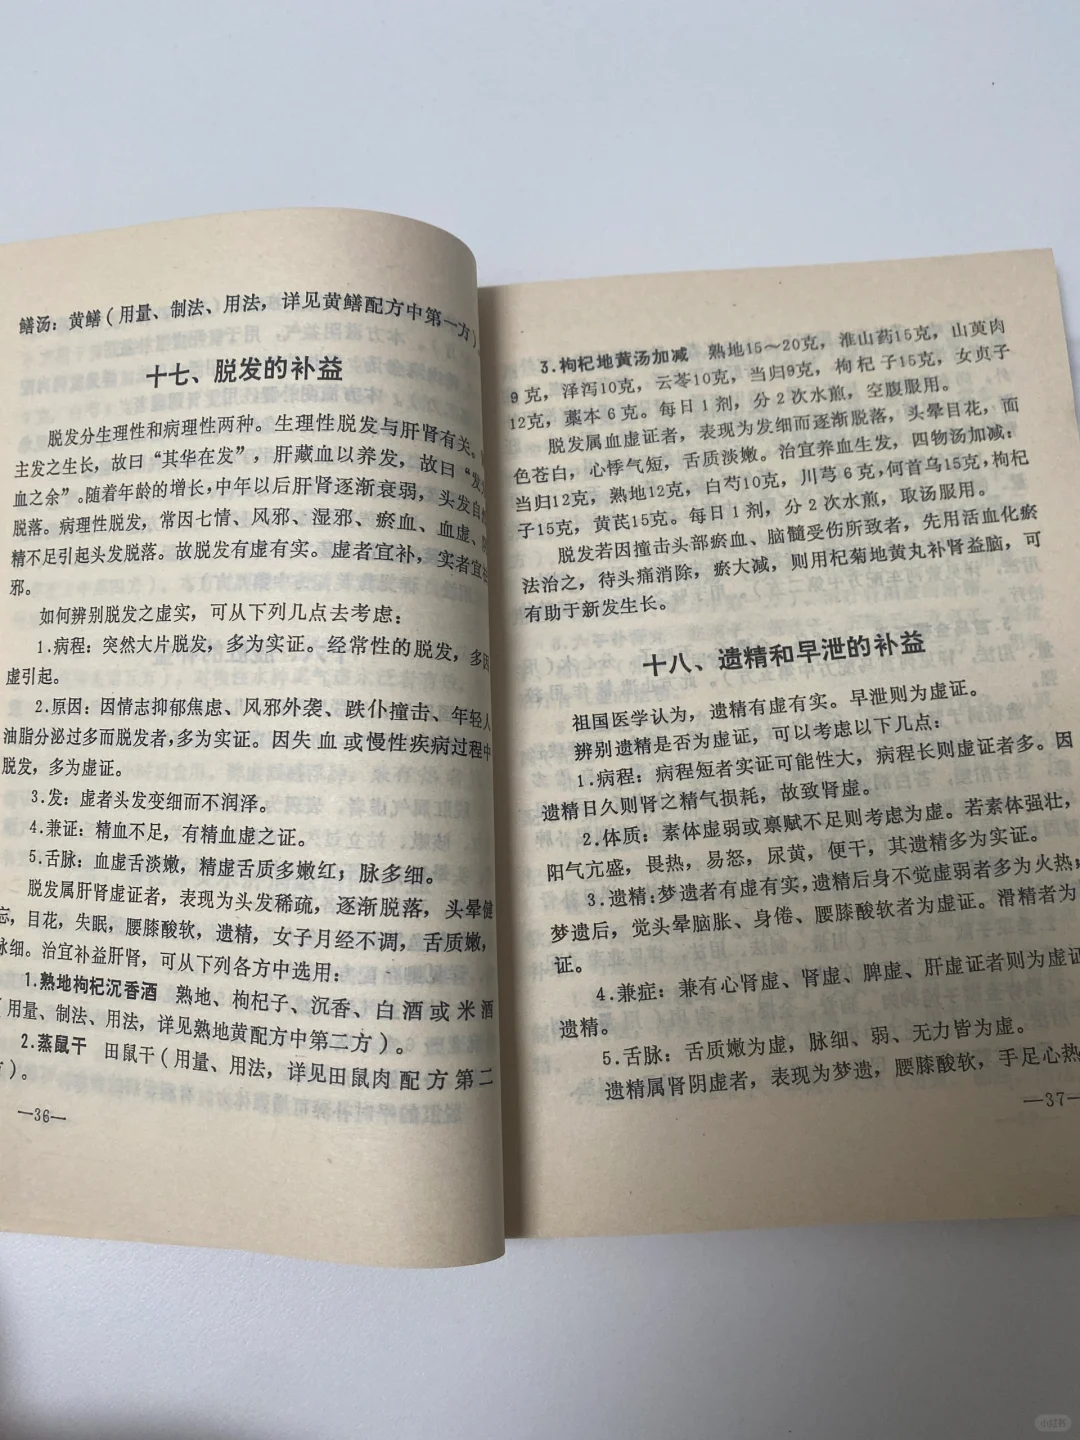 鳝汤：黄鳝（用量、制法、用法，详见黄鳝配方中第一方）。
十七、脱发的补益
脱发分生理性和病理性两种。生理性脱发与肝肾有关。
主发之生长，故曰“其华在发”，肝藏血以养发，故曰“发
血之余”。随着年龄的增长，中年以后肝肾逐渐衰弱，头发自
脱落。病理性脱发，常因七情、风邪、湿邪、瘀血、血虚、
精不足引起头发脱落。故脱发有虚有实。虚者宜补，实者宜
邪。
如何辨别脱发之虚实，可从下列几点去考虑：
1.病程：突然大片脱发，多为实证。经常性的脱发，多因
虚引起。
2.原因：因情志抑郁焦虑、风邪外袭、跌仆撞击、年轻人
油脂分泌过多而脱发者，多为实证。因失血或慢性疾病过程中
脱发，多为虚证。
3.发：虚者头发变细而不润泽。
4.兼证：精血不足，有精血虚之证。
5.舌脉：血虚舌淡嫩，精虚舌质多嫩红；脉多细。
脱发属肝肾虚证者，表现为头发稀疏，逐渐脱落，头晕健
忘，目花，失眠，腰膝酸软，遗精，女子月经不调，舌质嫩，
脉细。治宜补益肝肾，可从下列各方中选用：
1.熟地枸杞沉香酒　熟地、枸杞子、沉香、白酒或米酒
（用量、制法、用法，详见熟地黄配方中第二方）。
2.蒸鼠干　田鼠干（用量、用法，详见田鼠肉配方第二
方）。
—36—
3.枸杞地黄汤加减　熟地15～20克，淮山药15克，山萸肉
9克，泽泻10克，云苓10克，当归9克，枸杞子15克，女贞子
12克，藁本6克。每日1剂，分2次水煎，空腹服用。
脱发属血虚证者，表现为发细而逐渐脱落，头晕目花，面
色苍白，心悸气短，舌质淡嫩。治宜养血生发，四物汤加减：
当归12克，熟地12克，白芍10克，川芎6克，何首乌15克，枸杞
子15克，黄芪15克。每日1剂，分2次水煎，取汤服用。
脱发若因撞击头部瘀血、脑髓受伤所致者，先用活血化瘀
法治之，待头痛消除，瘀大减，则用杞菊地黄丸补肾益脑，可
有助于新发生长。
十八、遗精和早泄的补益
祖国医学认为，遗精有虚有实。早泄则为虚证。
辨别遗精是否为虚证，可以考虑以下几点：
1.病程：病程短者实证可能性大，病程长则虚证者多。因
遗精日久则肾之精气损耗，故致肾虚。
2.体质：素体虚弱或禀赋不足则考虑为虚。若素体强壮，
阳气亢盛，畏热，易怒，尿黄，便干，其遗精多为实证。
3.遗精：梦遗者有虚有实，遗精后身不觉虚弱者多为火热；
梦遗后，觉头晕脑胀、身倦、腰膝酸软者为虚证。滑精者为
证。
4.兼症：兼有心肾虚、肾虚、脾虚、肝虚证者则为虚证
遗精。
5.舌脉：舌质嫩为虚，脉细、弱、无力皆为虚。
遗精属肾阴虚者，表现为梦遗，腰膝酸软，手足心热
—37—
小红书